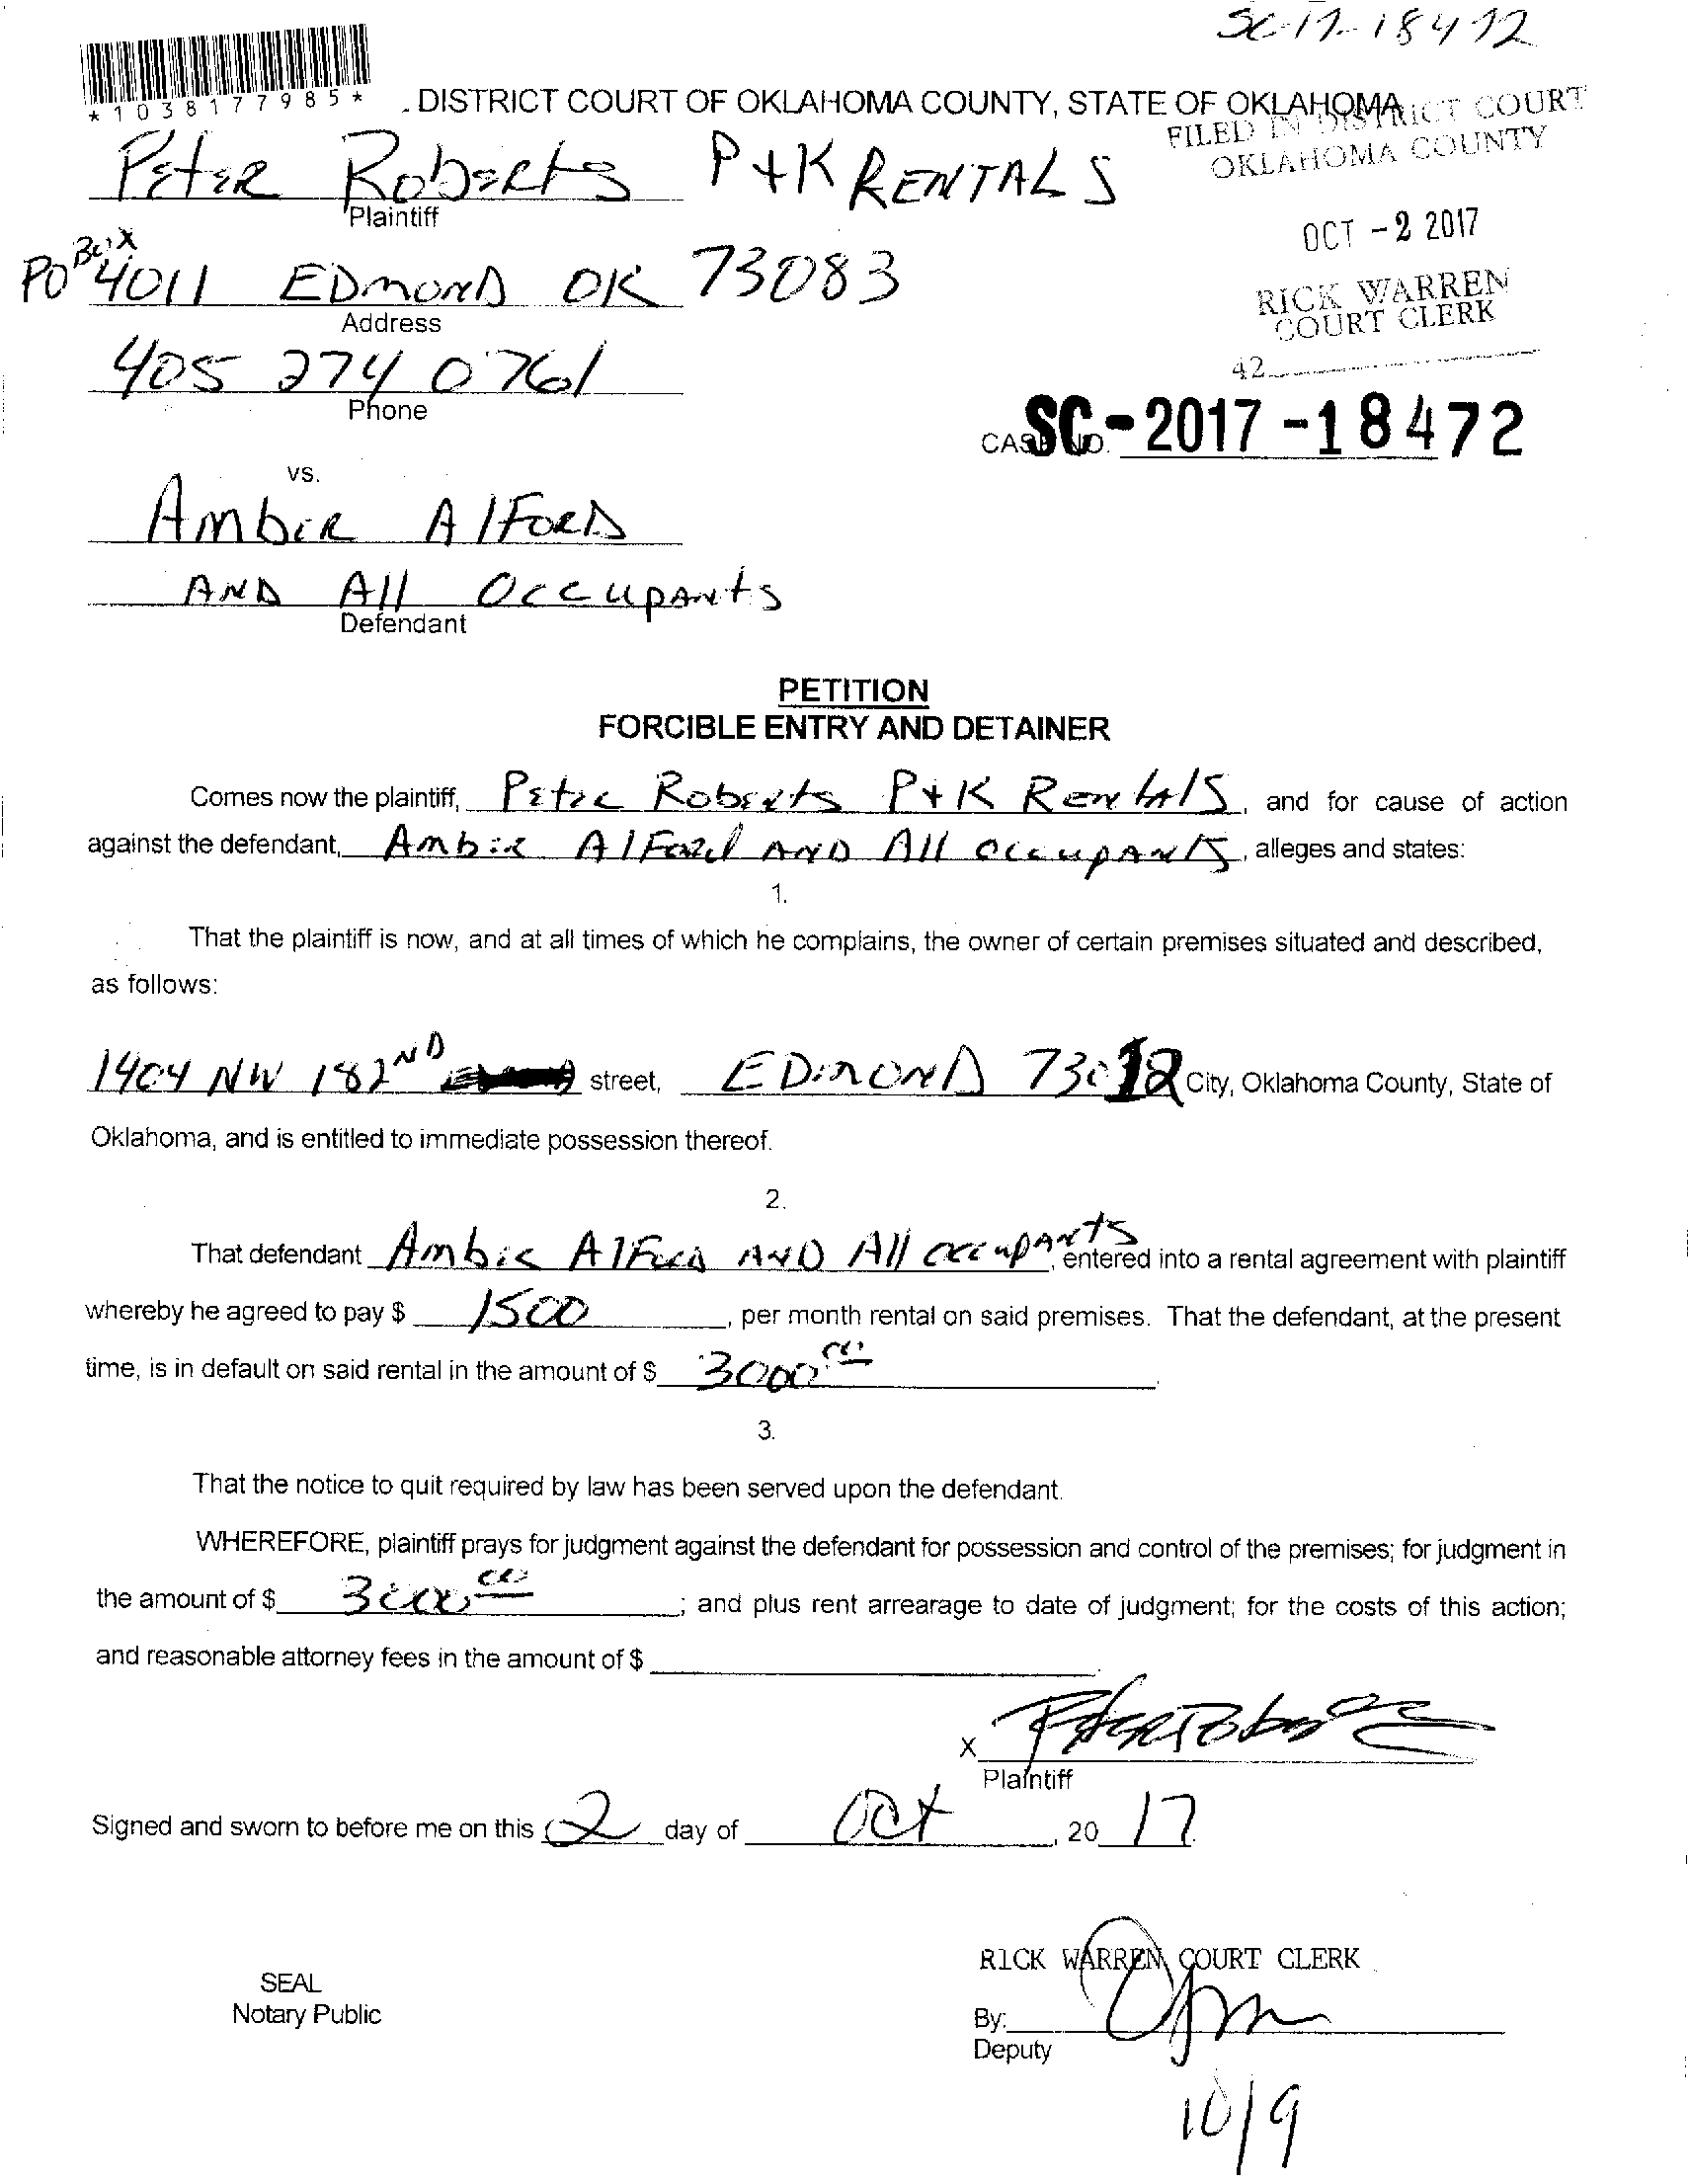 SC-17-18472
*1038177985*
. DISTRICT COURT OF OKLAHOMA COUNTY, STATE OF OKLAHOMA
FILED IN DISTRICT COURT
OKLAHOMA COUNTY
PETER ROBERTS P+K RENTALS
Plaintiff
OCT -2 2017
PO BOX 4011 EDMOND OK 73083
Address
RICK WARREN
COURT CLERK
405 274 0761
Phone
42
CASE NO. SC-2017-18472
vs.
AMBER AlFORD
AND All OccupANts
Defendant
PETITION
FORCIBLE ENTRY AND DETAINER
Comes now the plaintiff, Peter Roberts P+K Rentals, and for cause of action
against the defendant, Amber Alford AND All occupANts, alleges and states:
1.
That the plaintiff is now, and at all times of which he complains, the owner of certain premises situated and described,
as follows:
1404 NW 182ND street, EDMOND 73012 City, Oklahoma County, State of
Oklahoma, and is entitled to immediate possession thereof.
2.
That defendant Amber Alford AND All occupants, entered into a rental agreement with plaintiff
whereby he agreed to pay $ 1500, per month rental on said premises. That the defendant, at the present
time, is in default on said rental in the amount of $ 3000 00.
3.
That the notice to quit required by law has been served upon the defendant.
WHEREFORE, plaintiff prays for judgment against the defendant for possession and control of the premises; for judgment in
the amount of $ 3000 00; and plus rent arrearage to date of judgment; for the costs of this action;
and reasonable attorney fees in the amount of $
X Peter Roberts
Plaintiff
Signed and sworn to before me on this 2 day of Oct, 20 17.
RICK WARREN COURT CLERK
SEAL
Notary Public
By:
Deputy
10/9